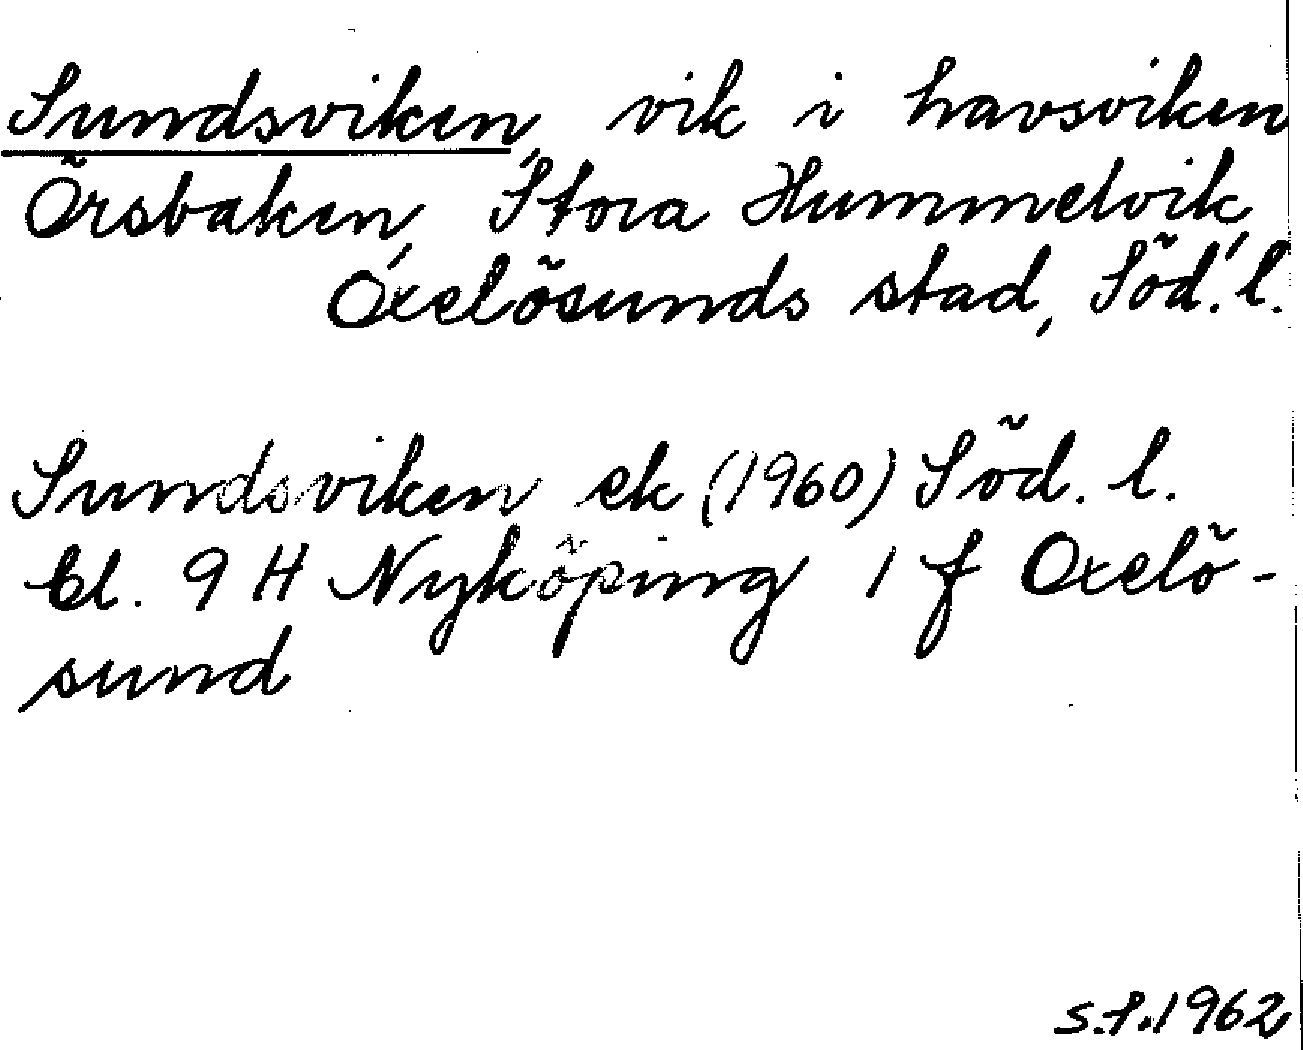 Sundsviken, vik i havsviken
Örsbaken, Stora Hummelvik,
Oxelösunds stad, Söd. l.
Sundsviken ek (1960) Söd. l.
Bl. 9 H Nyköping 1 f Oxelö-
sund
S.S.1962